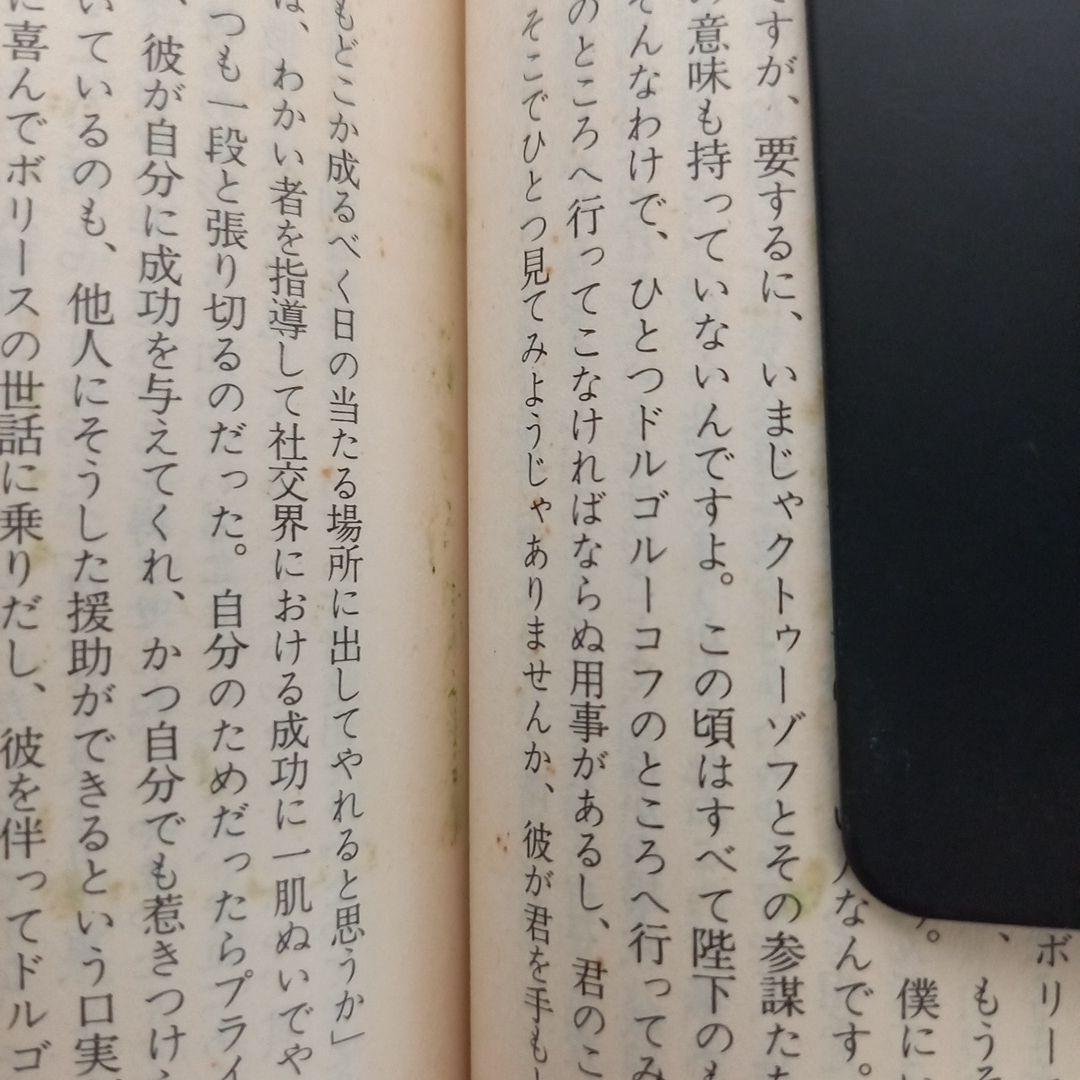 ボリー
もうそ
僕に
なんです。
すが、要するに、いまじゃクトゥーゾフとその参謀たち
意味も持っていないんですよ。この頃はすべて陛下の
そんなわけで、ひとつドルゴルーコフのところへ行ってみ
のところへ行ってこなければならぬ用事があるし、君のこ
そこでひとつ見てみようじゃありませんか、彼が君を手も
もどこか成るべく日の当たる場所に出してやれると思うか」
は、わかい者を指導して社交界における成功に一肌ぬいでや
つも一段と張り切るのだった。自分のためだったらプライ
、彼が自分に成功を与えてくれ、かつ自分でも惹きつけ
いているのも、他人にそうした援助ができるという口実
に喜んでボリースの世話に乗りだし、彼を伴ってドルゴ